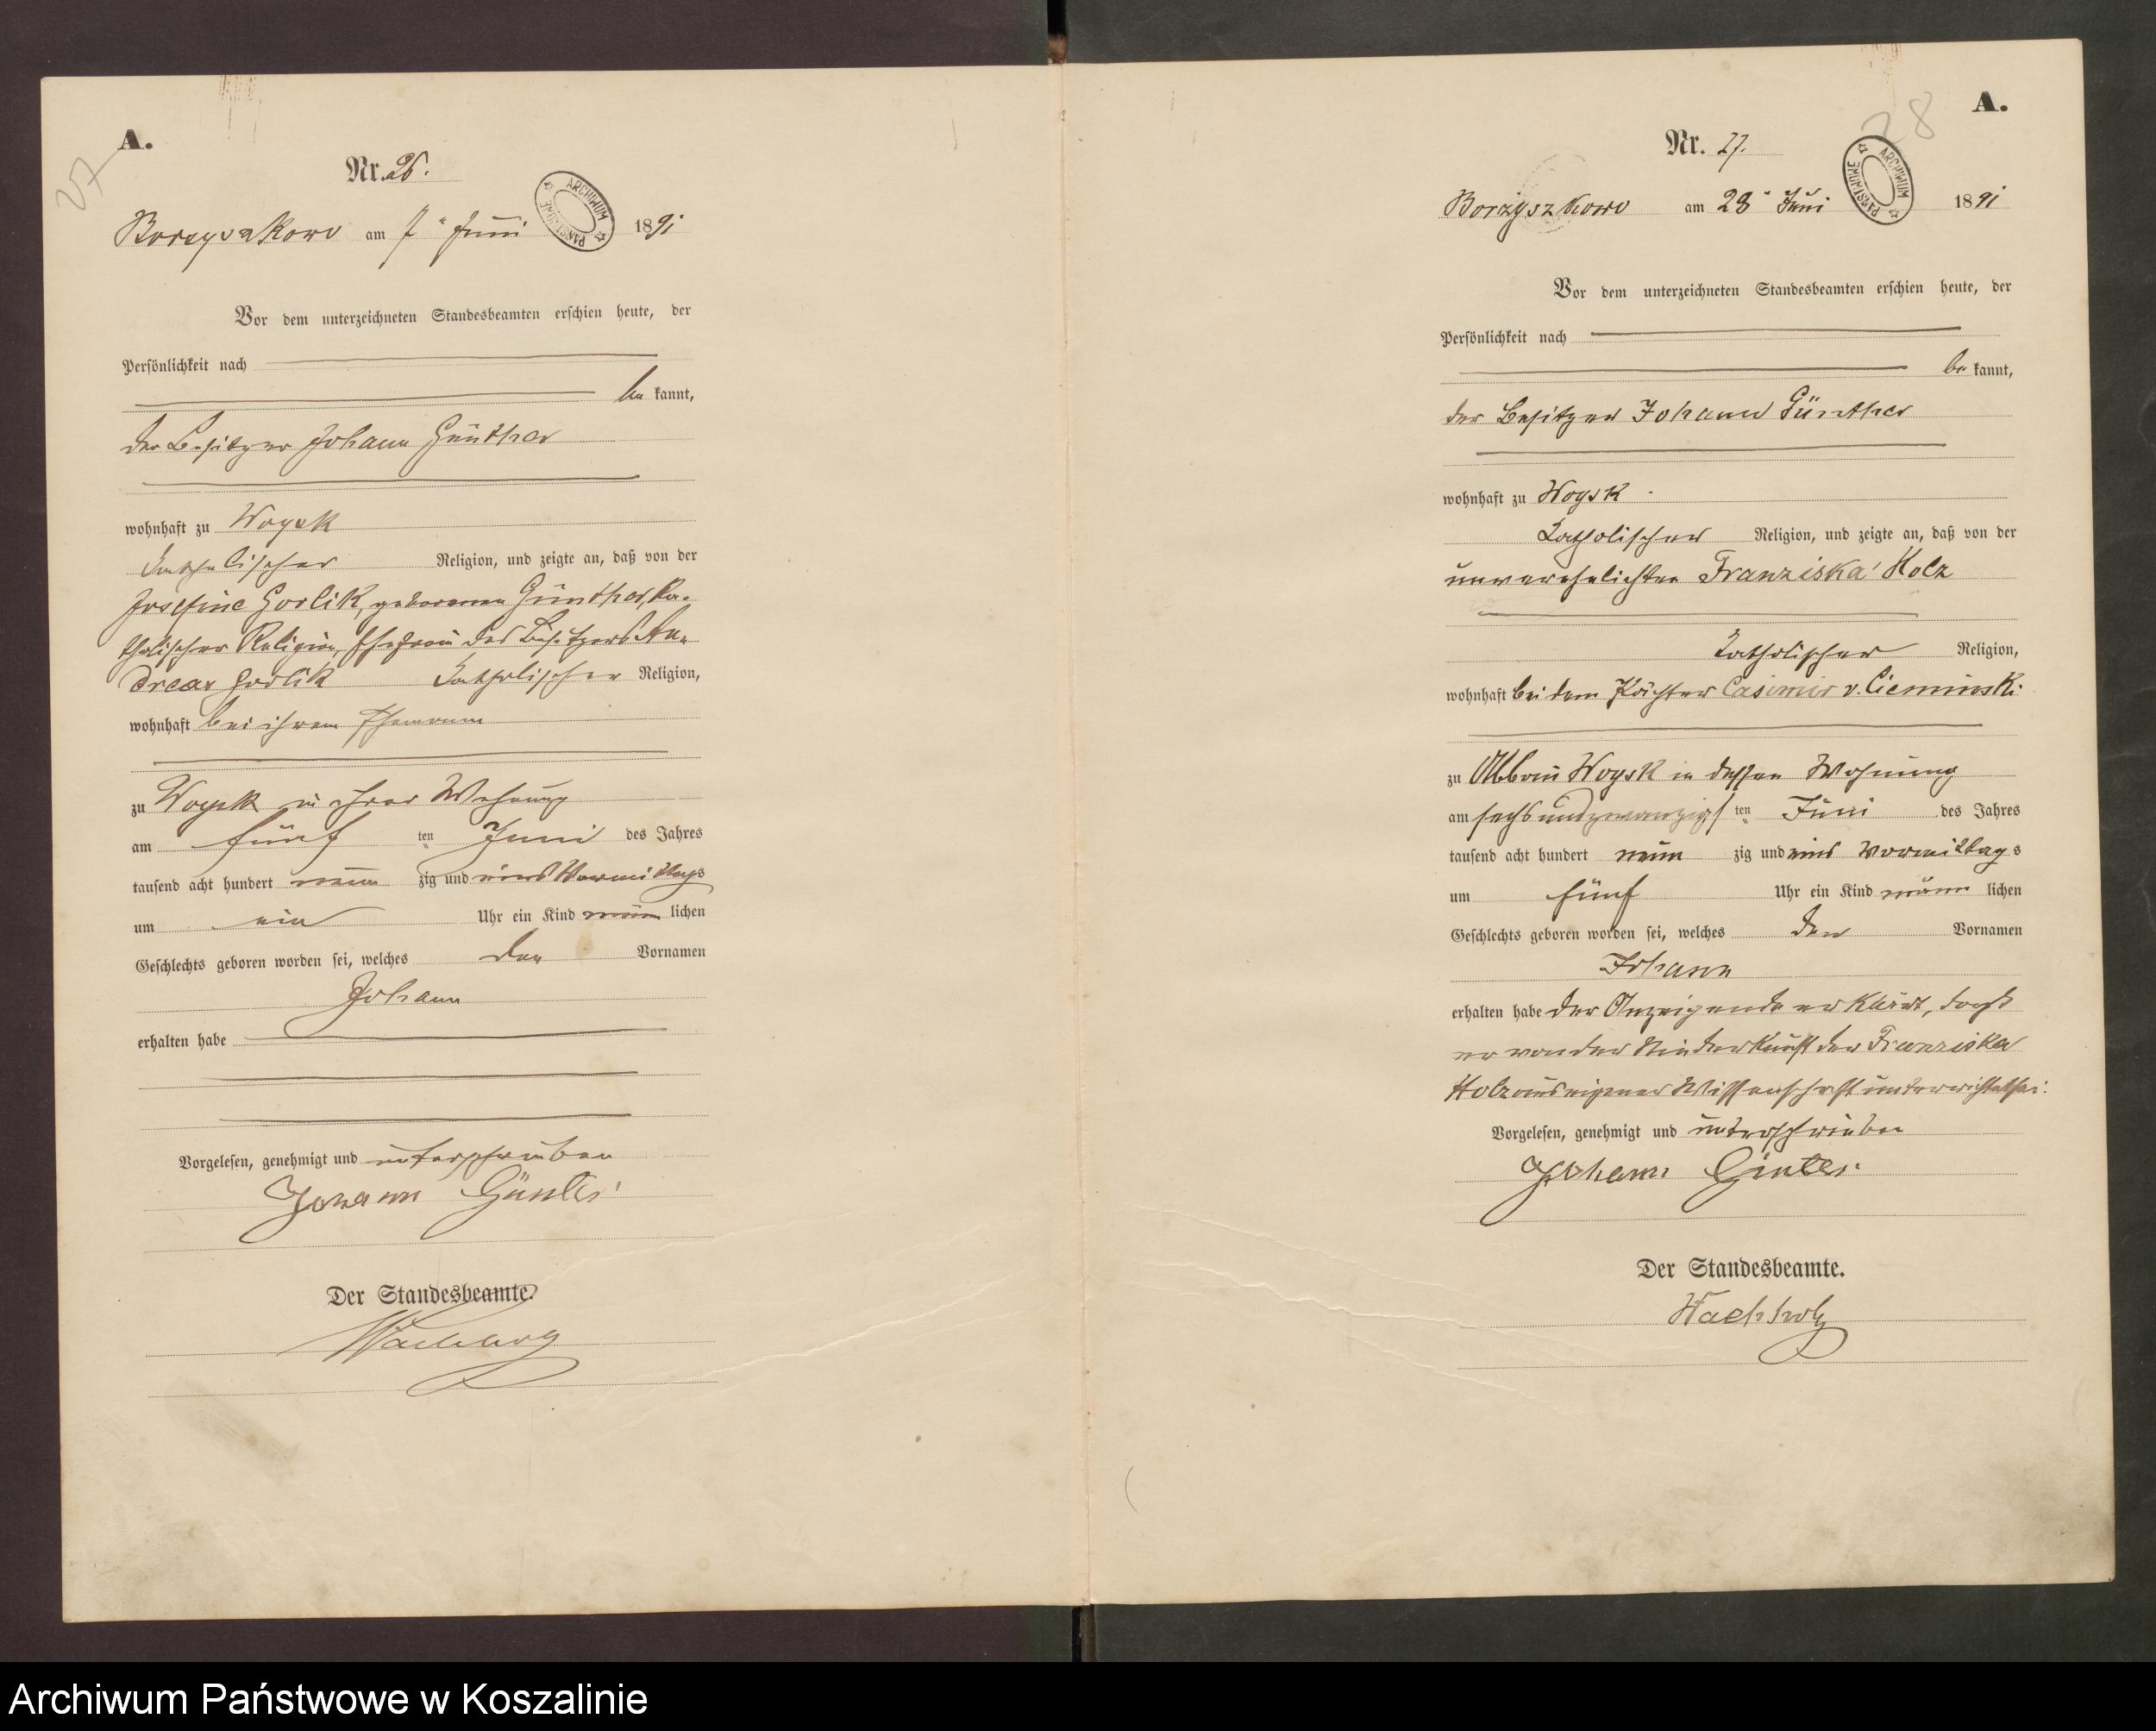 A.
27
Nr. 26.
Borzyszkowo am 7ten Juni 1891
ARCHIWUM PAŃSTWOWE
Vor dem unterzeichneten Standesbeamten erschien heute, der
Persönlichkeit nach
be kannt,
der Besitzer Johann Günther
wohnhaft zu Woysk
katholischer Religion, und zeigte an, daß von der
Josefine Gorlik, geborenen Günther, ka-
tholischer Religion, Ehefrau des Besitzers An-
dreas Gorlik katholischer Religion,
wohnhaft bei ihrem Ehemann
zu Woysk in ihrer Wohnung
am fünf ten Juni des Jahres
tausend acht hundert neun zig und eins Vormittags
um ein Uhr ein Kind männ lichen
Geschlechts geboren worden sei, welches den Vornamen
Johann
erhalten habe
Vorgelesen, genehmigt und unterschrieben
Johann Günter
Der Standesbeamte.
Wachholz
A.
28
Nr. 27.
Borzyszkowo am 28ten Juni 1891
ARCHIWUM PAŃSTWOWE
Vor dem unterzeichneten Standesbeamten erschien heute, der
Persönlichkeit nach
be kannt,
der Besitzer Johann Günther
wohnhaft zu Woysk
katholischer Religion, und zeigte an, daß von der
unverehelichten Franziska Holz
katholischer Religion,
wohnhaft bei dem Pächter Casimir v. Cieminski
zu Abbau Woysk in dessen Wohnung
am sechsundzwanzigs ten Juni des Jahres
tausend acht hundert neun zig und eins Vormittags
um fünf Uhr ein Kind männ lichen
Geschlechts geboren worden sei, welches den Vornamen
Johann
erhalten habe der Anzeigende erklärt, daß
er von der Niederkunft der Franziska
Holz aus eigener Wissenschaft unterrichtet sei.
Vorgelesen, genehmigt und unterschrieben
Johann Günter
Der Standesbeamte.
Wachholz
Archiwum Państwowe w Koszalinie